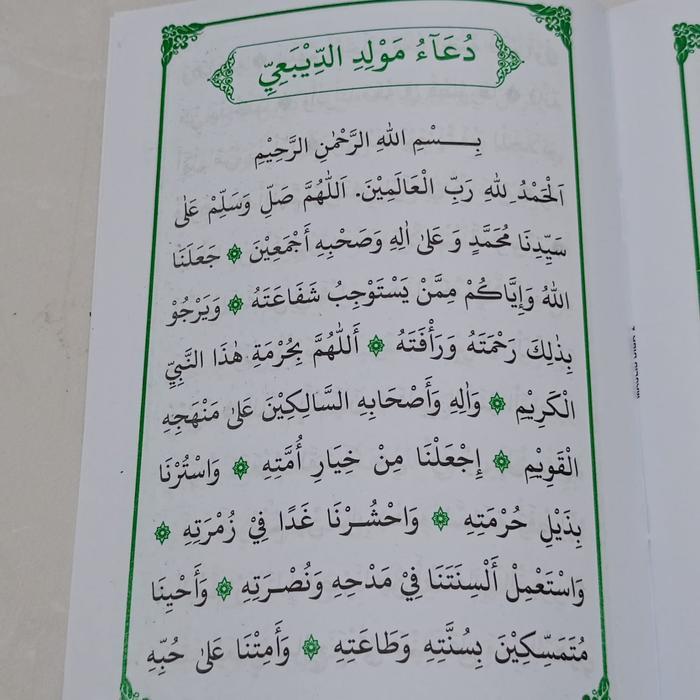 دُعَآءُ مَوْلِدِ الدِّيْبَعِيِّ
بِـــــسْمِ اللهِ الرَّحْمٰنِ الرَّحِيْمِ
اَلْحَمْدُ لِلهِ رَبِّ الْعَالَمِيْنَ. اَللّٰهُمَّ صَلِّ وَسَلِّمْ عَلٰى
سَيِّدِنَا مُحَمَّدٍ وَ عَلٰى اٰلِهِ وَصَحْبِهِ أَجْمَعِيْنَ ۞ جَعَلَنَا
اللهُ وَإِيَّاكُمْ مِمَّنْ يَسْتَوْجِبُ شَفَاعَتَهُ ۞ وَيَرْجُوْ
بِذٰلِكَ رَحْمَتَهُ وَرَأْفَتَهُ ۞ أَللّٰهُمَّ بِحُرْمَةِ هٰذَا النَّبِيِّ
الْكَرِيْمِ ۞ وَاٰلِهِ وَأَصْحَابِهِ السَّالِكِيْنَ عَلٰى مَنْهَجِهِ
الْقَوِيْمِ ۞ إِجْعَلْنَا مِنْ خِيَارِ أُمَّتِهِ ۞ وَاسْتُرْنَا
بِذَيْلِ حُرْمَتِهِ ۞ وَاحْشُـرْنَا غَدًا فِيْ زُمْرَتِهِ ۞
وَاسْتَعْمِلْ أَلْسِنَتَنَا فِيْ مَدْحِهِ وَنُصْـرَتِهِ ۞ وَأَحْيِنَا
مُتَمَسِّكِيْنَ بِسُنَّتِهِ وَطَاعَتِهِ ۞ وَأَمِتْنَا عَلٰى حُبِّهِ